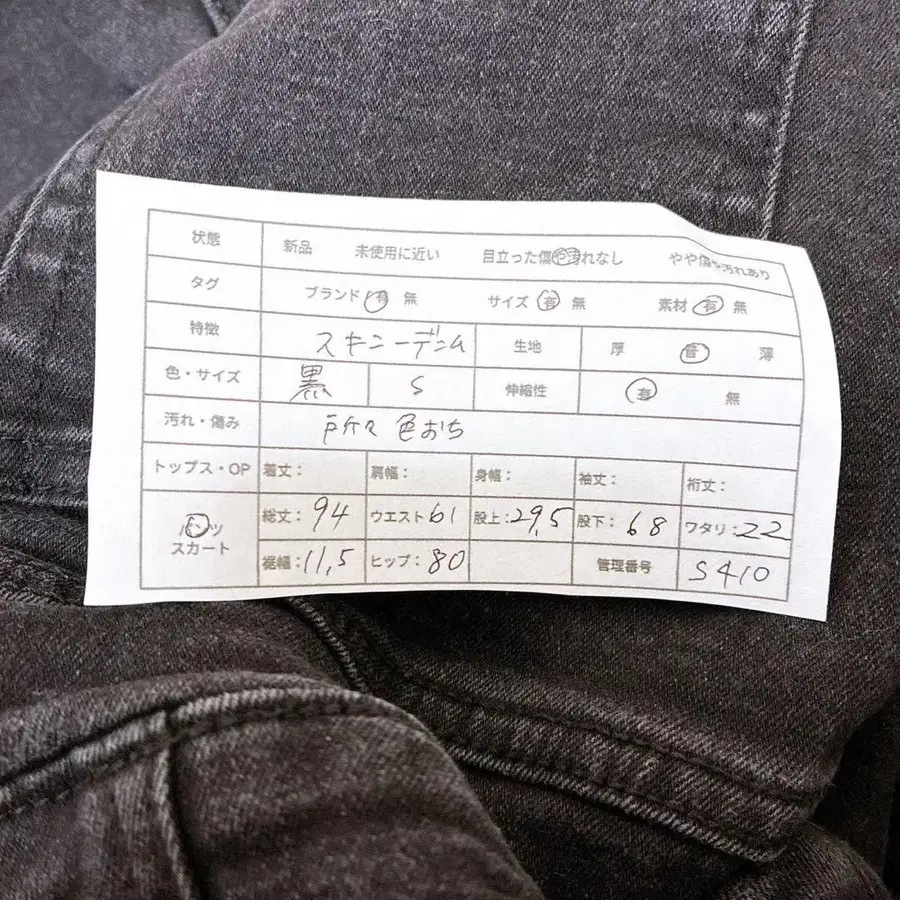 状態 新品 未使用に近い 目立った傷や汚れなし やや傷や汚れあり
タグ ブランド 有 無 サイズ 有 無 素材 有 無
特徴 スキニーデニム 生地 厚 普 薄
色・サイズ 黒 S 伸縮性 有 無
汚れ・傷み 所々 色おち
トップス・OP 着丈: 肩幅: 身幅: 袖丈: 裄丈:
パンツ 総丈:94 ウエスト61 股上:29,5 股下:68 ワタリ:22
スカート 裾幅:11,5 ヒップ:80 管理番号 S410